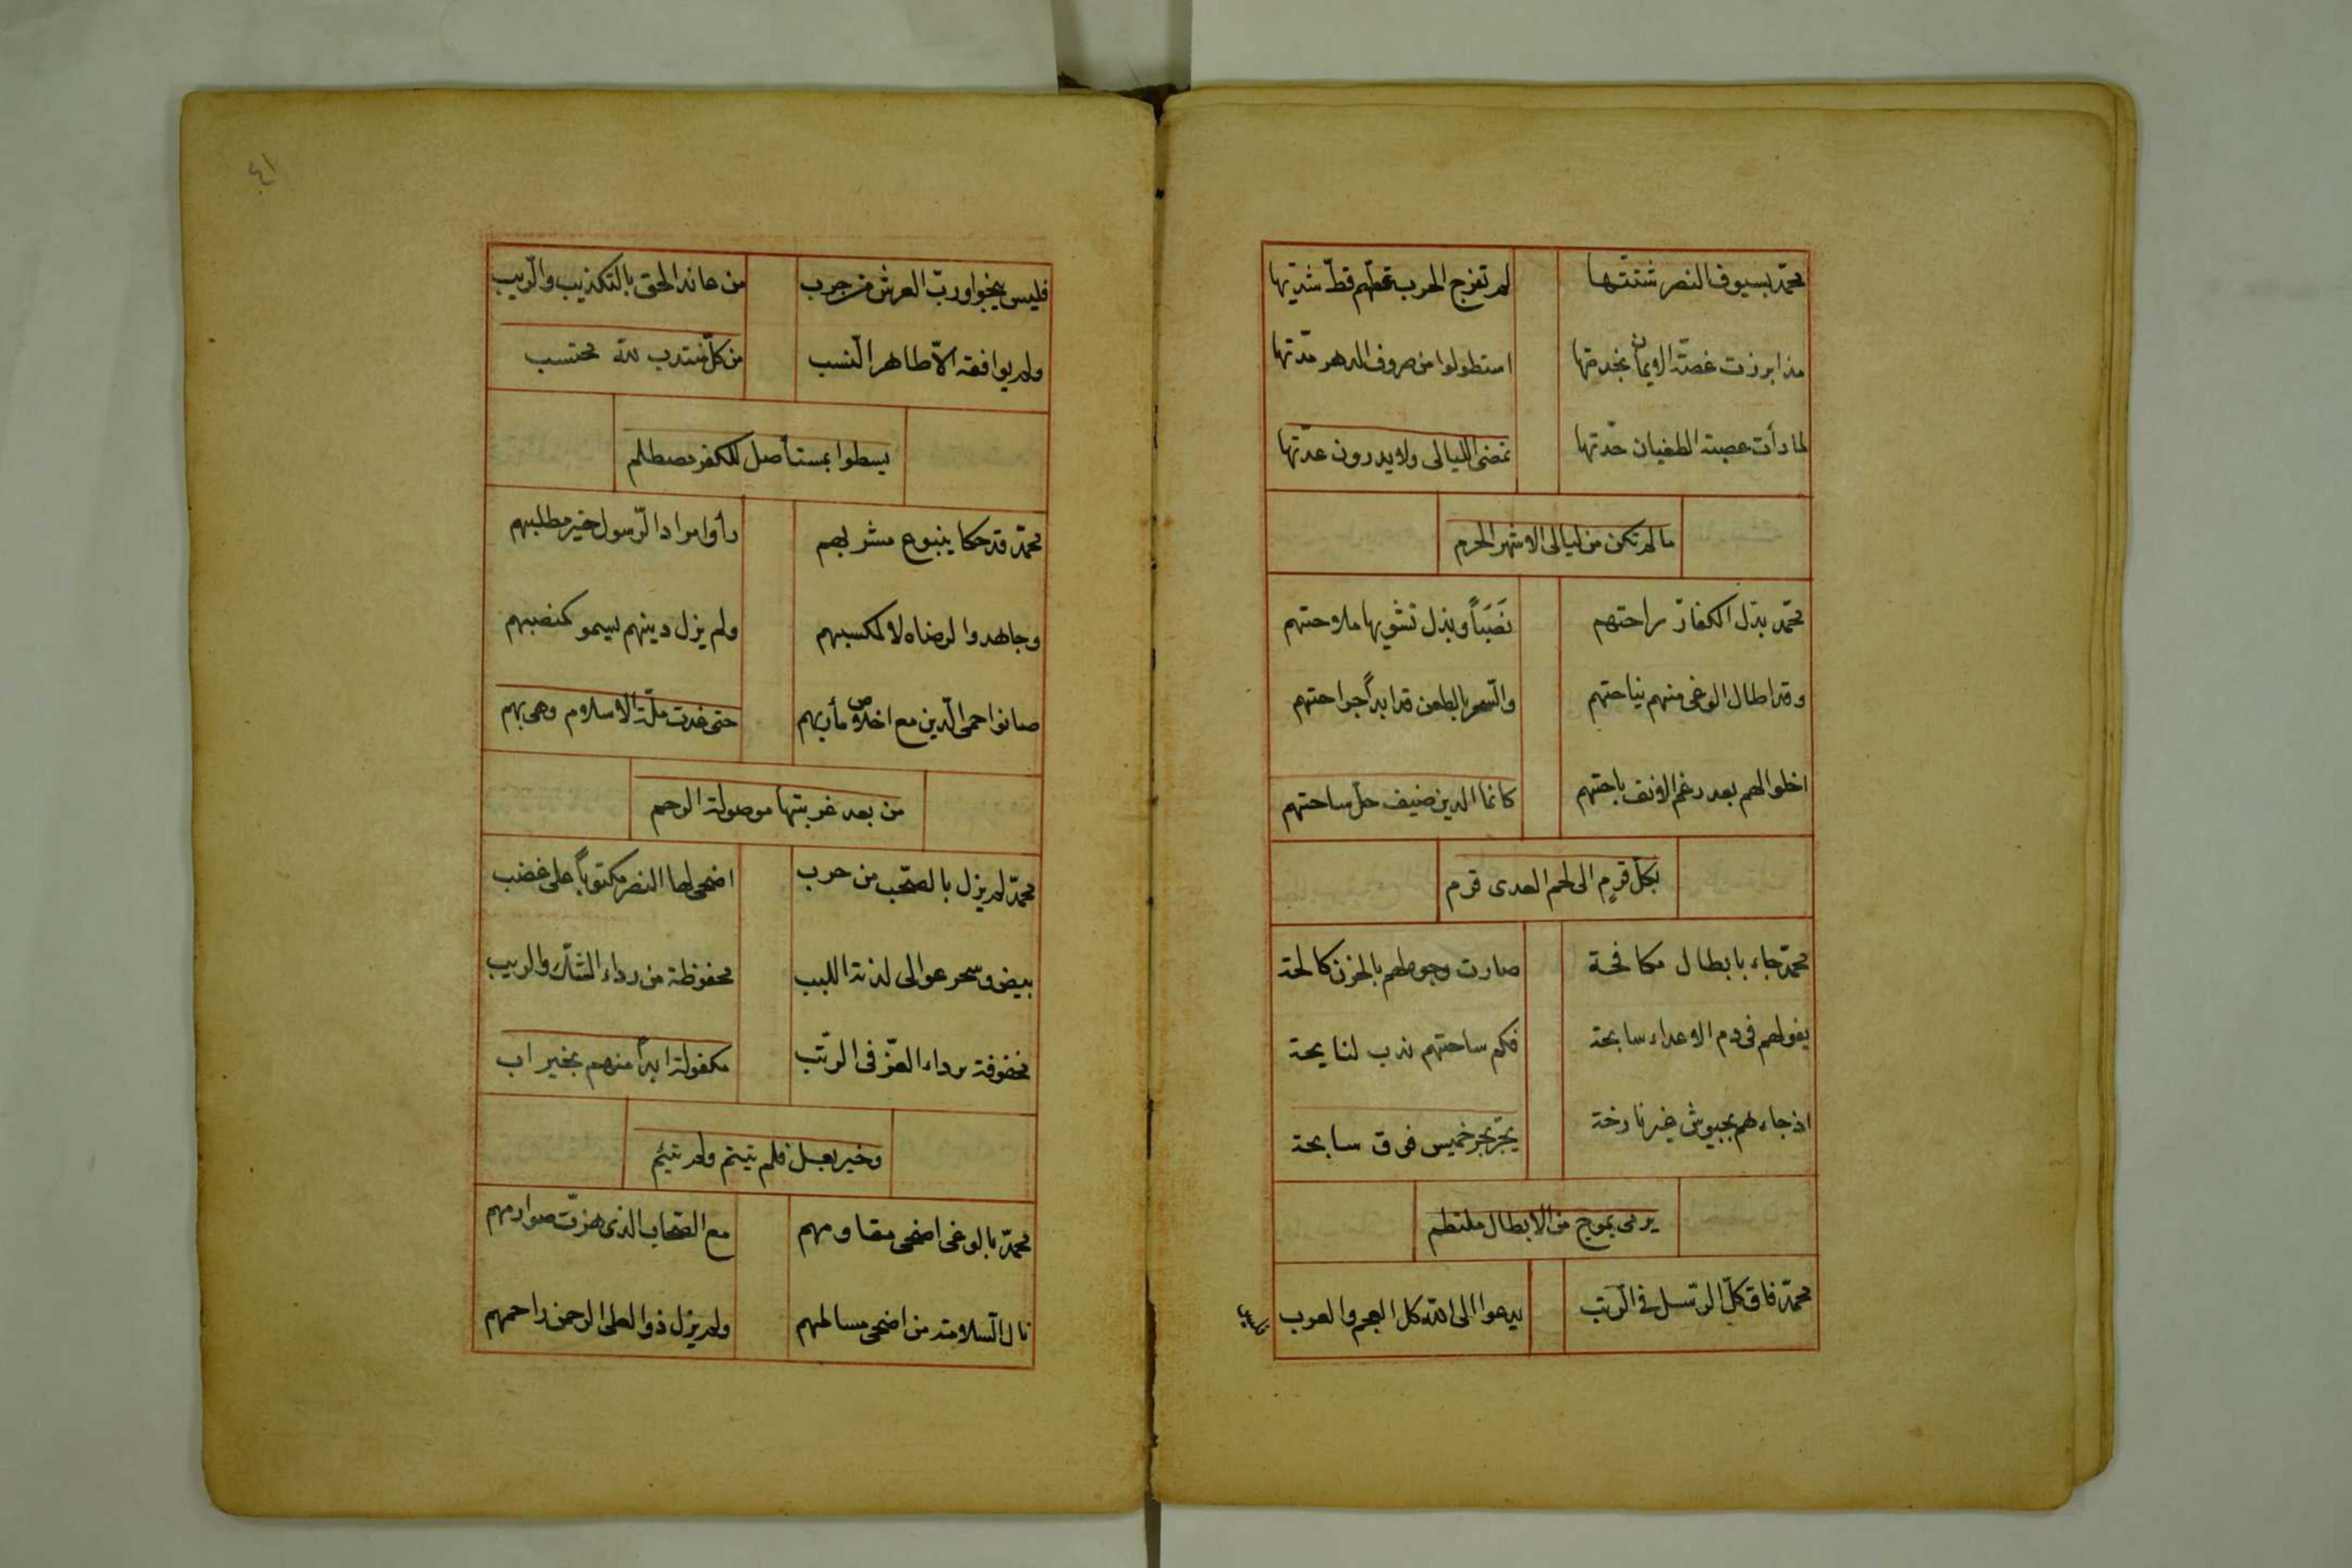 محمّد بسيوف النصر شتتها لم تفرج الحرب عظم قطّ شدّتها
مذ ابرزت غصّة الايمان بخدمتها استطولوا من صروف الدهر مدّتها
لما رأت عصبة الطغيان حدّتها تمضى الليالى ولا يدرون عدّتها
ما لم تكن من ليالى الاشهر الحرم
محمّد بدّل الكفار راحتهم نَصَبَاً وبذل تشويها ملاحتهم
وقد اطال الوغى منهم نياحتهم والسّمر بالطعن قد ابدأ جراحتهم
اخلوا لهم بعد رغم الانف باحتهم كانما الدين ضيف حل ساحتهم
بكل قرمٍ الى لحم العدى قرم
محمّد جاء بابطال مكافحة صارت وجوههم بالحزن كالحة
يفولهم فى دم الاعداء سابحة فكم ساحتهم ندب لنايحة
اذ جاءهم بجيوش غير نازحة يجرّ بحر خميس فوق سابحة
يرمى بموج من الابطال ملتطم
محمّد فاق كلّ الرّسل فى الرّتب يدعوا الى اللّه كل العجم والعرب
فليس
٤١
فليس ينجوا وربّ العرش من جرب من عاند الحق بالتكذيب والرّيب
ولم يوافقه الاّ طاهر النّسب من كلّ منتدب للّه محتسب
يسطوا بمستأصل للكفر مصطلم
محمّد قد حكا ينبوع مشربهم رأوا مراد الرّسول خير مطلبهم
وجاهدوا لرضاه لا لمكسبهم ولم يزل دينهم يسمو كمنصبهم
صانوا حمى الدّين مع اخلاص مأربهم حتى غدت ملّة الاسلام وهى بهم
من بعد غربتها موصولة الرحم
محمّد لم يزل بالصّحب من حرب اضحى لها النصر مكتوباً على غضب
بيض وسمر عوالى لذنة اللبب محفوظة من رداء الشكّ والريب
مخفوفة برداء العزّ فى الرتب مكفولة ابداً منهم بخير اب
وخير بعل فلم تيتم ولم تئم
محمّد بالوغى اضحى مقاومهم مع الصّحاب الذى هزّت صوارمهم
نال السّلامة من اضحى مسالمهم ولم يزل ذو العلى الرحمن راحمهم